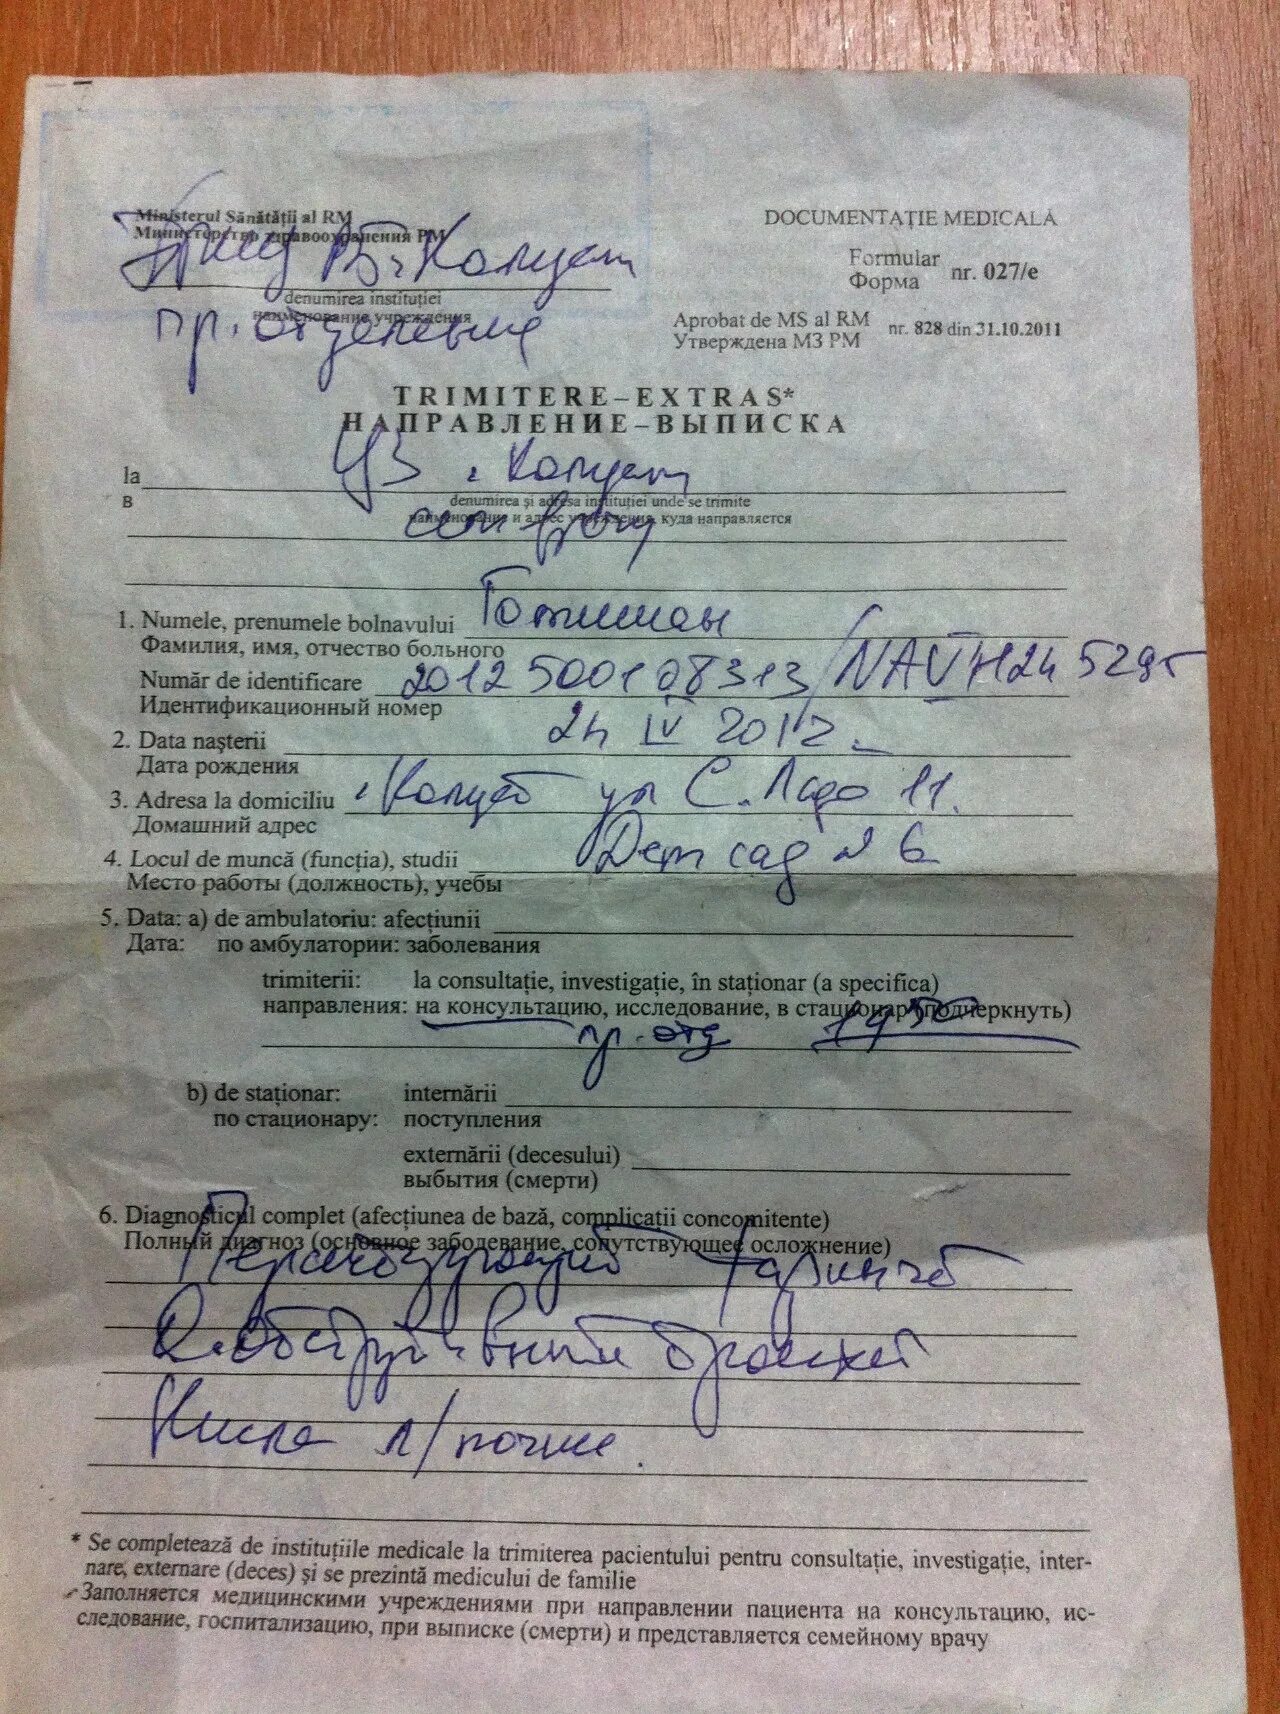 Ministerul Sănătății al RM
Министерство здравоохранения РМ
denumirea instituției
наименование учреждения
пр. отделение
DOCUMENTAȚIE MEDICALĂ
Formular
Форма nr. 027/e
Aprobat de MS al RM
Утверждена МЗ РМ nr. 828 din 31.10.2011
TRIMITERE–EXTRAS*
НАПРАВЛЕНИЕ–ВЫПИСКА
la
в
denumirea și adresa instituției unde se trimite
наименование и адрес учреждения, куда направляется
1. Numele, prenumele bolnavului
Фамилия, имя, отчество больного
Număr de identificare 2012500108313/
Идентификационный номер
2. Data nașterii 24 IV 2012
Дата рождения
3. Adresa la domiciliu ул С. Лазо 11.
Домашний адрес
4. Locul de muncă (funcția), studii Дет сад N 6
Место работы (должность), учебы
5. Data: a) de ambulatoriu: afecțiunii
Дата: по амбулатории: заболевания
trimiterii: la consultație, investigație, în staționar (a specifica)
направления: на консультацию, исследование, в стационар (подчеркнуть)
пр. отд 19 50
b) de staționar: internării
по стационару: поступления
externării (decesului)
выбытия (смерти)
6. Diagnosticul complet (afecțiunea de bază, complicații concomitente)
Полный диагноз (основное заболевание, сопутствующее осложнение)
бронхит
почки.
* Se completează de instituțiile medicale la trimiterea pacientului pentru consultație, investigație, inter-
nare, externare (deces) și se prezintă medicului de familie
Заполняется медицинскими учреждениями при направлении пациента на консультацию, ис-
следование, госпитализацию, при выписке (смерти) и представляется семейному врачу